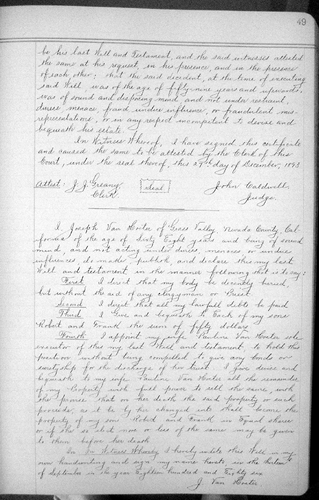 49
be his last Will and Testament, and the said witnesses attested
the same at his request, in his presence, and in the presence
of each other: that the said decedent, at the time of executing
said Will, was of the age of fifty-nine years and upwards,
was of sound and disposing mind, and not under restraint,
duress, menace, fraud, undue influence, or fraudulent mis-
representations, or in any respect incompetent to devise and
bequeath his estate.
In Witness Whereof, I have signed this certificate
and caused the same to be attested by the Clerk of this
Court, under the seal thereof, this day of December, 1893
Attest: J. J. Greany Seal John Caldwell,
Clerk Judge.
I Joseph Van Hoeter of Grass Valley, Nevada County, Cal-
ifornia of the age of Sixty Eight years and being of sound
mind, and not acting under duress menaces or undue
influences, do make publish, and declare this my last
Will and testament in the manner following that is to say:
First I direct that my body be decently buried,
but without the aid of any clergyman or Priest
Second I direct that all my lawful debts be paid
Third I Give and bequeath to Each of my sons
Robert and Frank the sum of fifty dollars
Fourth I appoint my wife Pauline Van Hoeter sole
executor of this my last Will and testament to hold this
position without being compelled to give any bonds or
suretyship for the discharge of her trust I give devise and
bequeath to my wife Pauline Van Hoeter all the remainder
of my Property with full power to sell the same, with
the proviso that on her death the said property or such
proceeds, as it be by her changed into shall become the
property of my sons Robert and Frank in Equal shares
or if she so elect more or less of the same may be given
to them before her death
In Witness Whereof I hereby indite this Will in my
own handwriting and sign my name hereto, in the
of September in the year Eighteen hundred and Eighty six
J. Van Hoeter